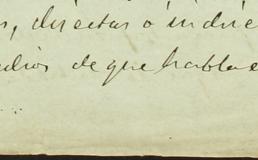 s, directas o indire
dios de que hablae